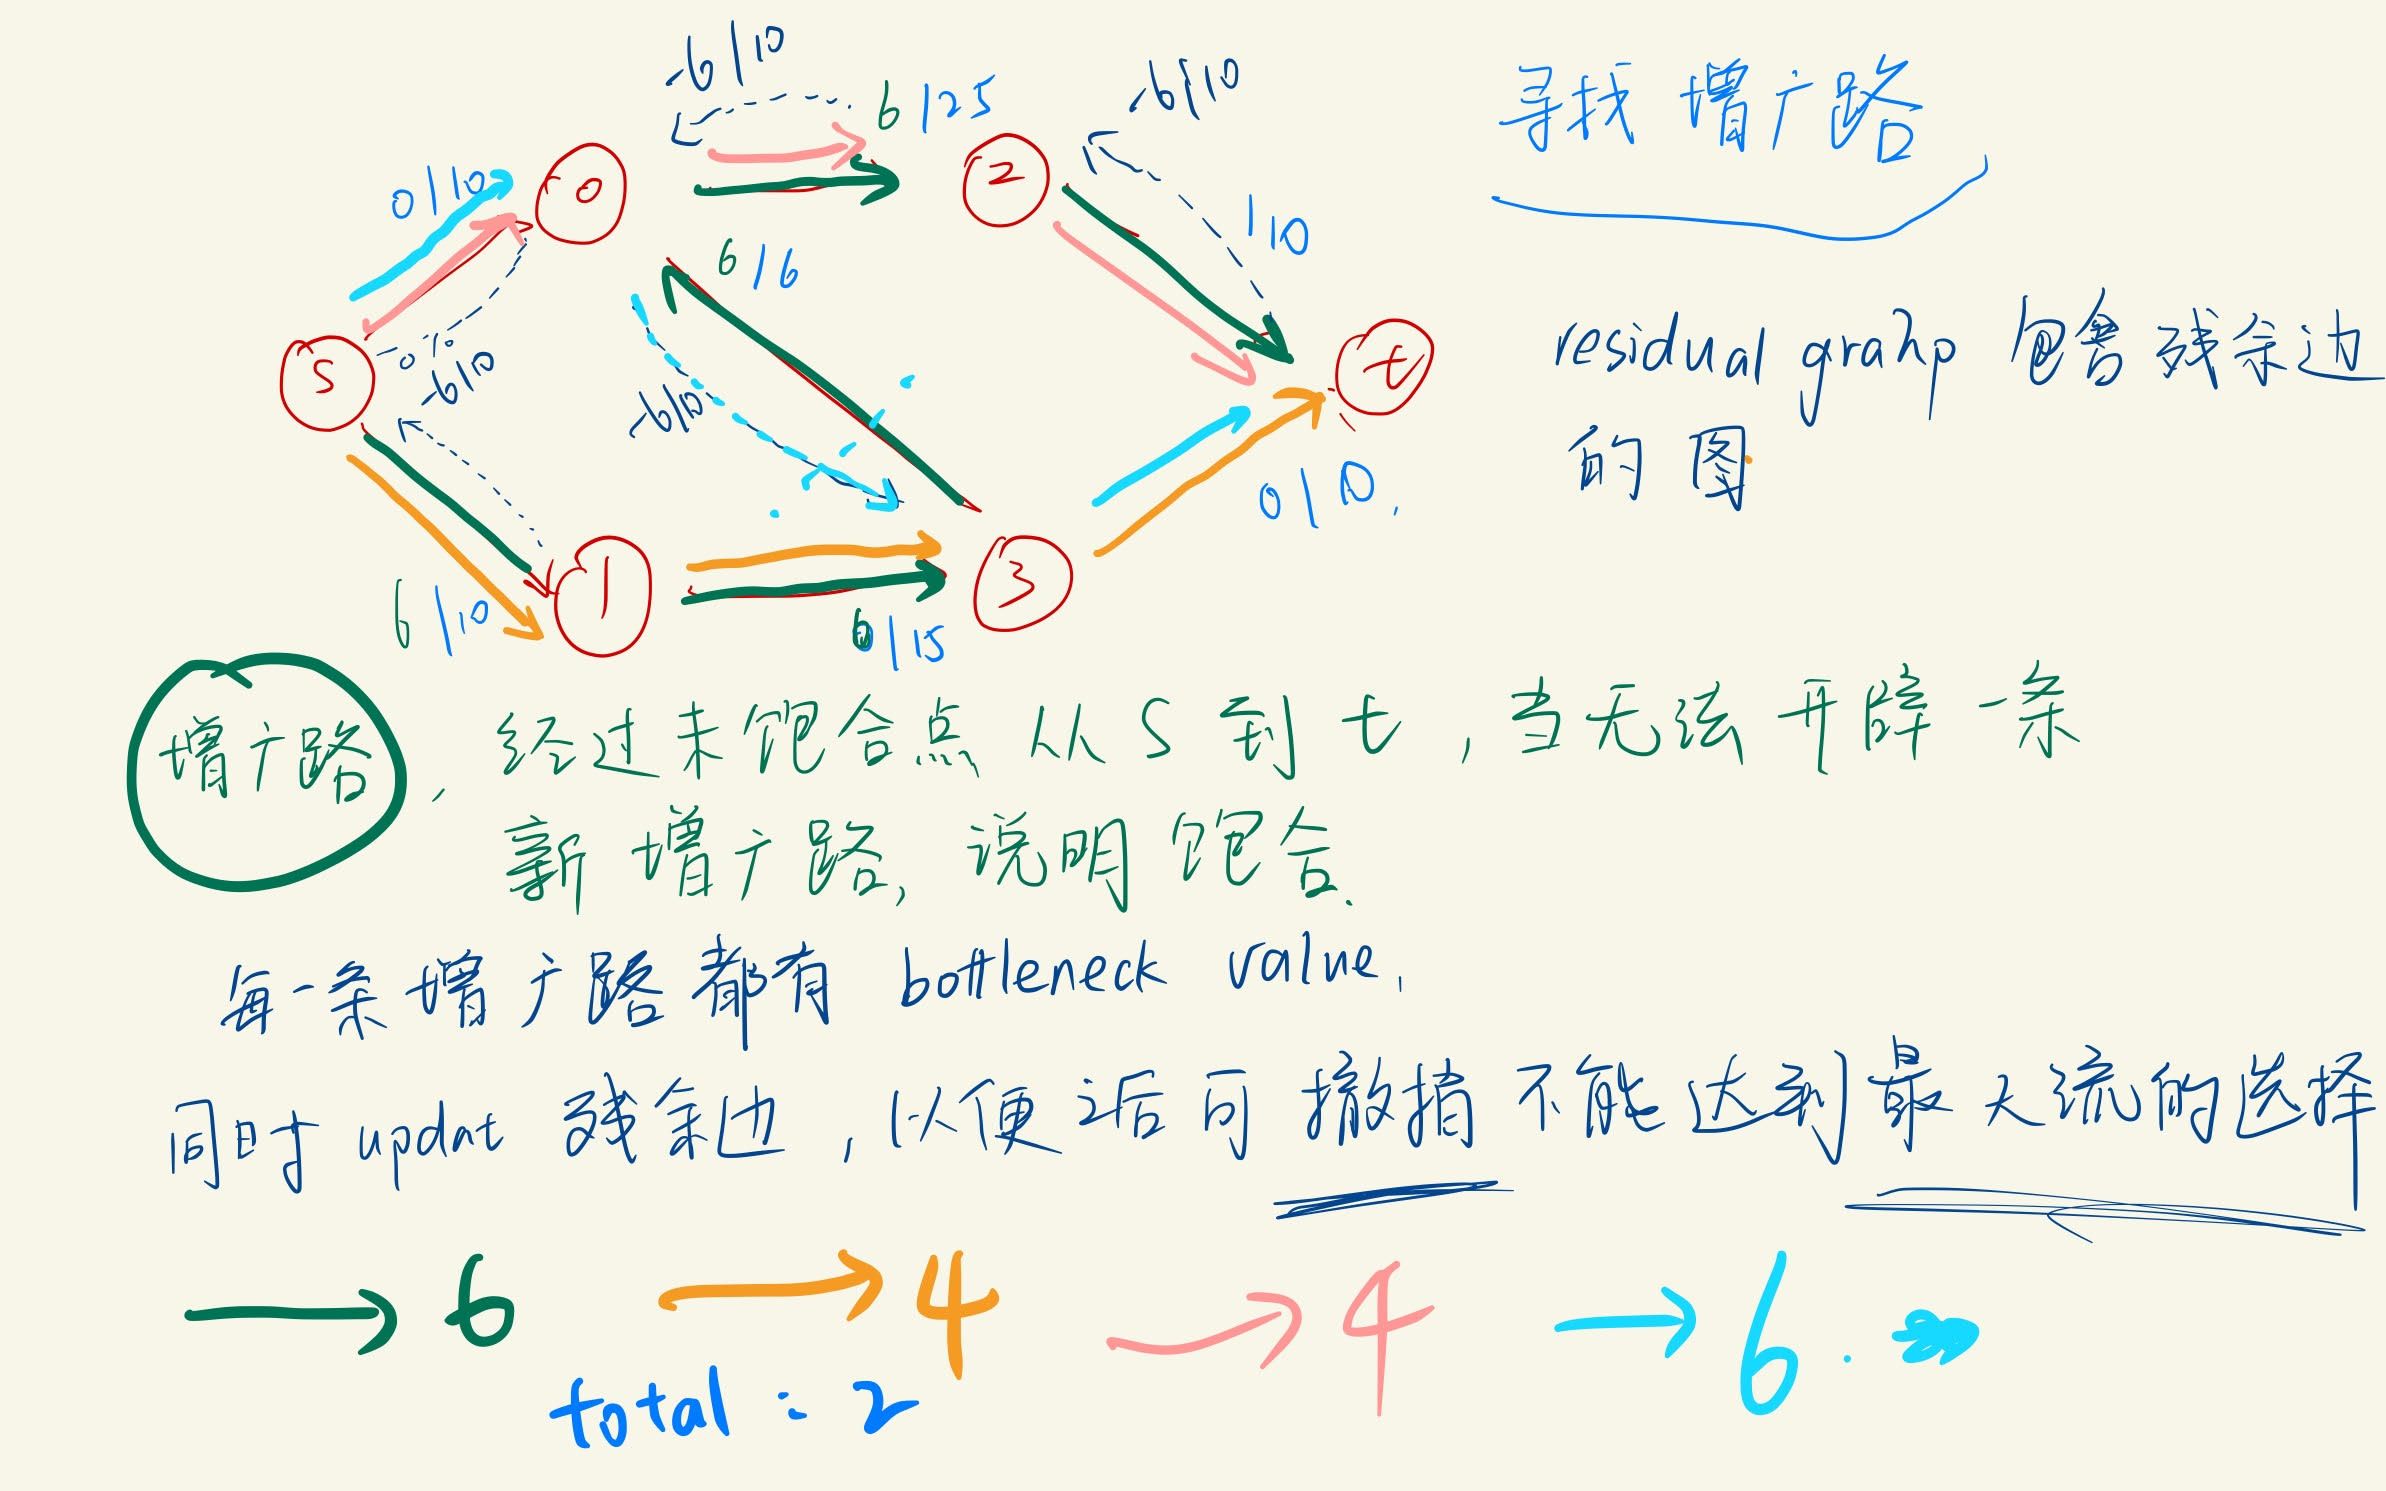 -6/10
6/25
-6/10
0/10
0
2
1/10
6/6
S
0/0
-6/10
-6/10
t
0/10.
1
3
6/10
6/15
寻找 增广路
residual grahp 包含残余边
的图.
增广路, 经过未饱合点 从 S 到 t, 当无法开辟一条
新增广路, 说明饱合.
每一条增广路都有 bottleneck value.
同时 updat 残余边, 以便之后可撤消不能达到最大流的选择
→ 6 → 4 → 4 → 6.
total: 2